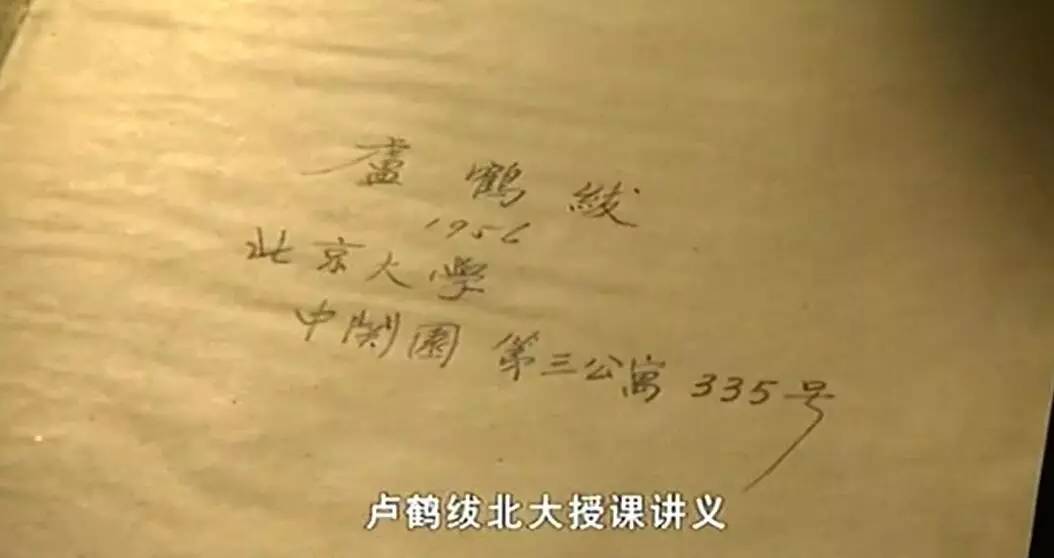 盧鶴紱
1956
北京大學
中関園 第三公寓 335号
卢鹤绂北大授课讲义